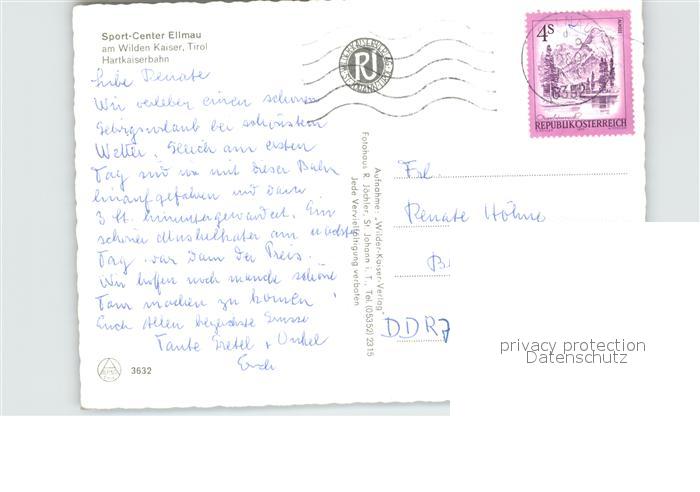 Sport-Center Ellmau
am Wilden Kaiser, Tirol
Hartkaiserbahn
Liebe Renate
Wir verleben einen schönen
Gebirgsurlaub bei schönstem
Wetter. Gleich am ersten
Tag sind wir mit dieser Bahn
hinaufgefahren und dann
3 St. hinuntergewandert. Ein
schöner Muskelkater am nächsten
Tag war dann der Preis.
Wir hoffen noch manche schöne
Tour machen zu können
Euch Allen herzlichste Grüsse
Tante Gretel + Onkel
Erich
3632
Aufnahme: „Wilder-Kaiser-Verlag"
Fotohaus R. Jöchler, St. Johann i. T., Tel. (05352) 2315
Jede Vervielfältigung verboten
RJ
4S
ALMSEE
REPUBLIK ÖSTERREICH
6352
Frl.
Renate Höhne
DDR
privacy protection
Datenschutz